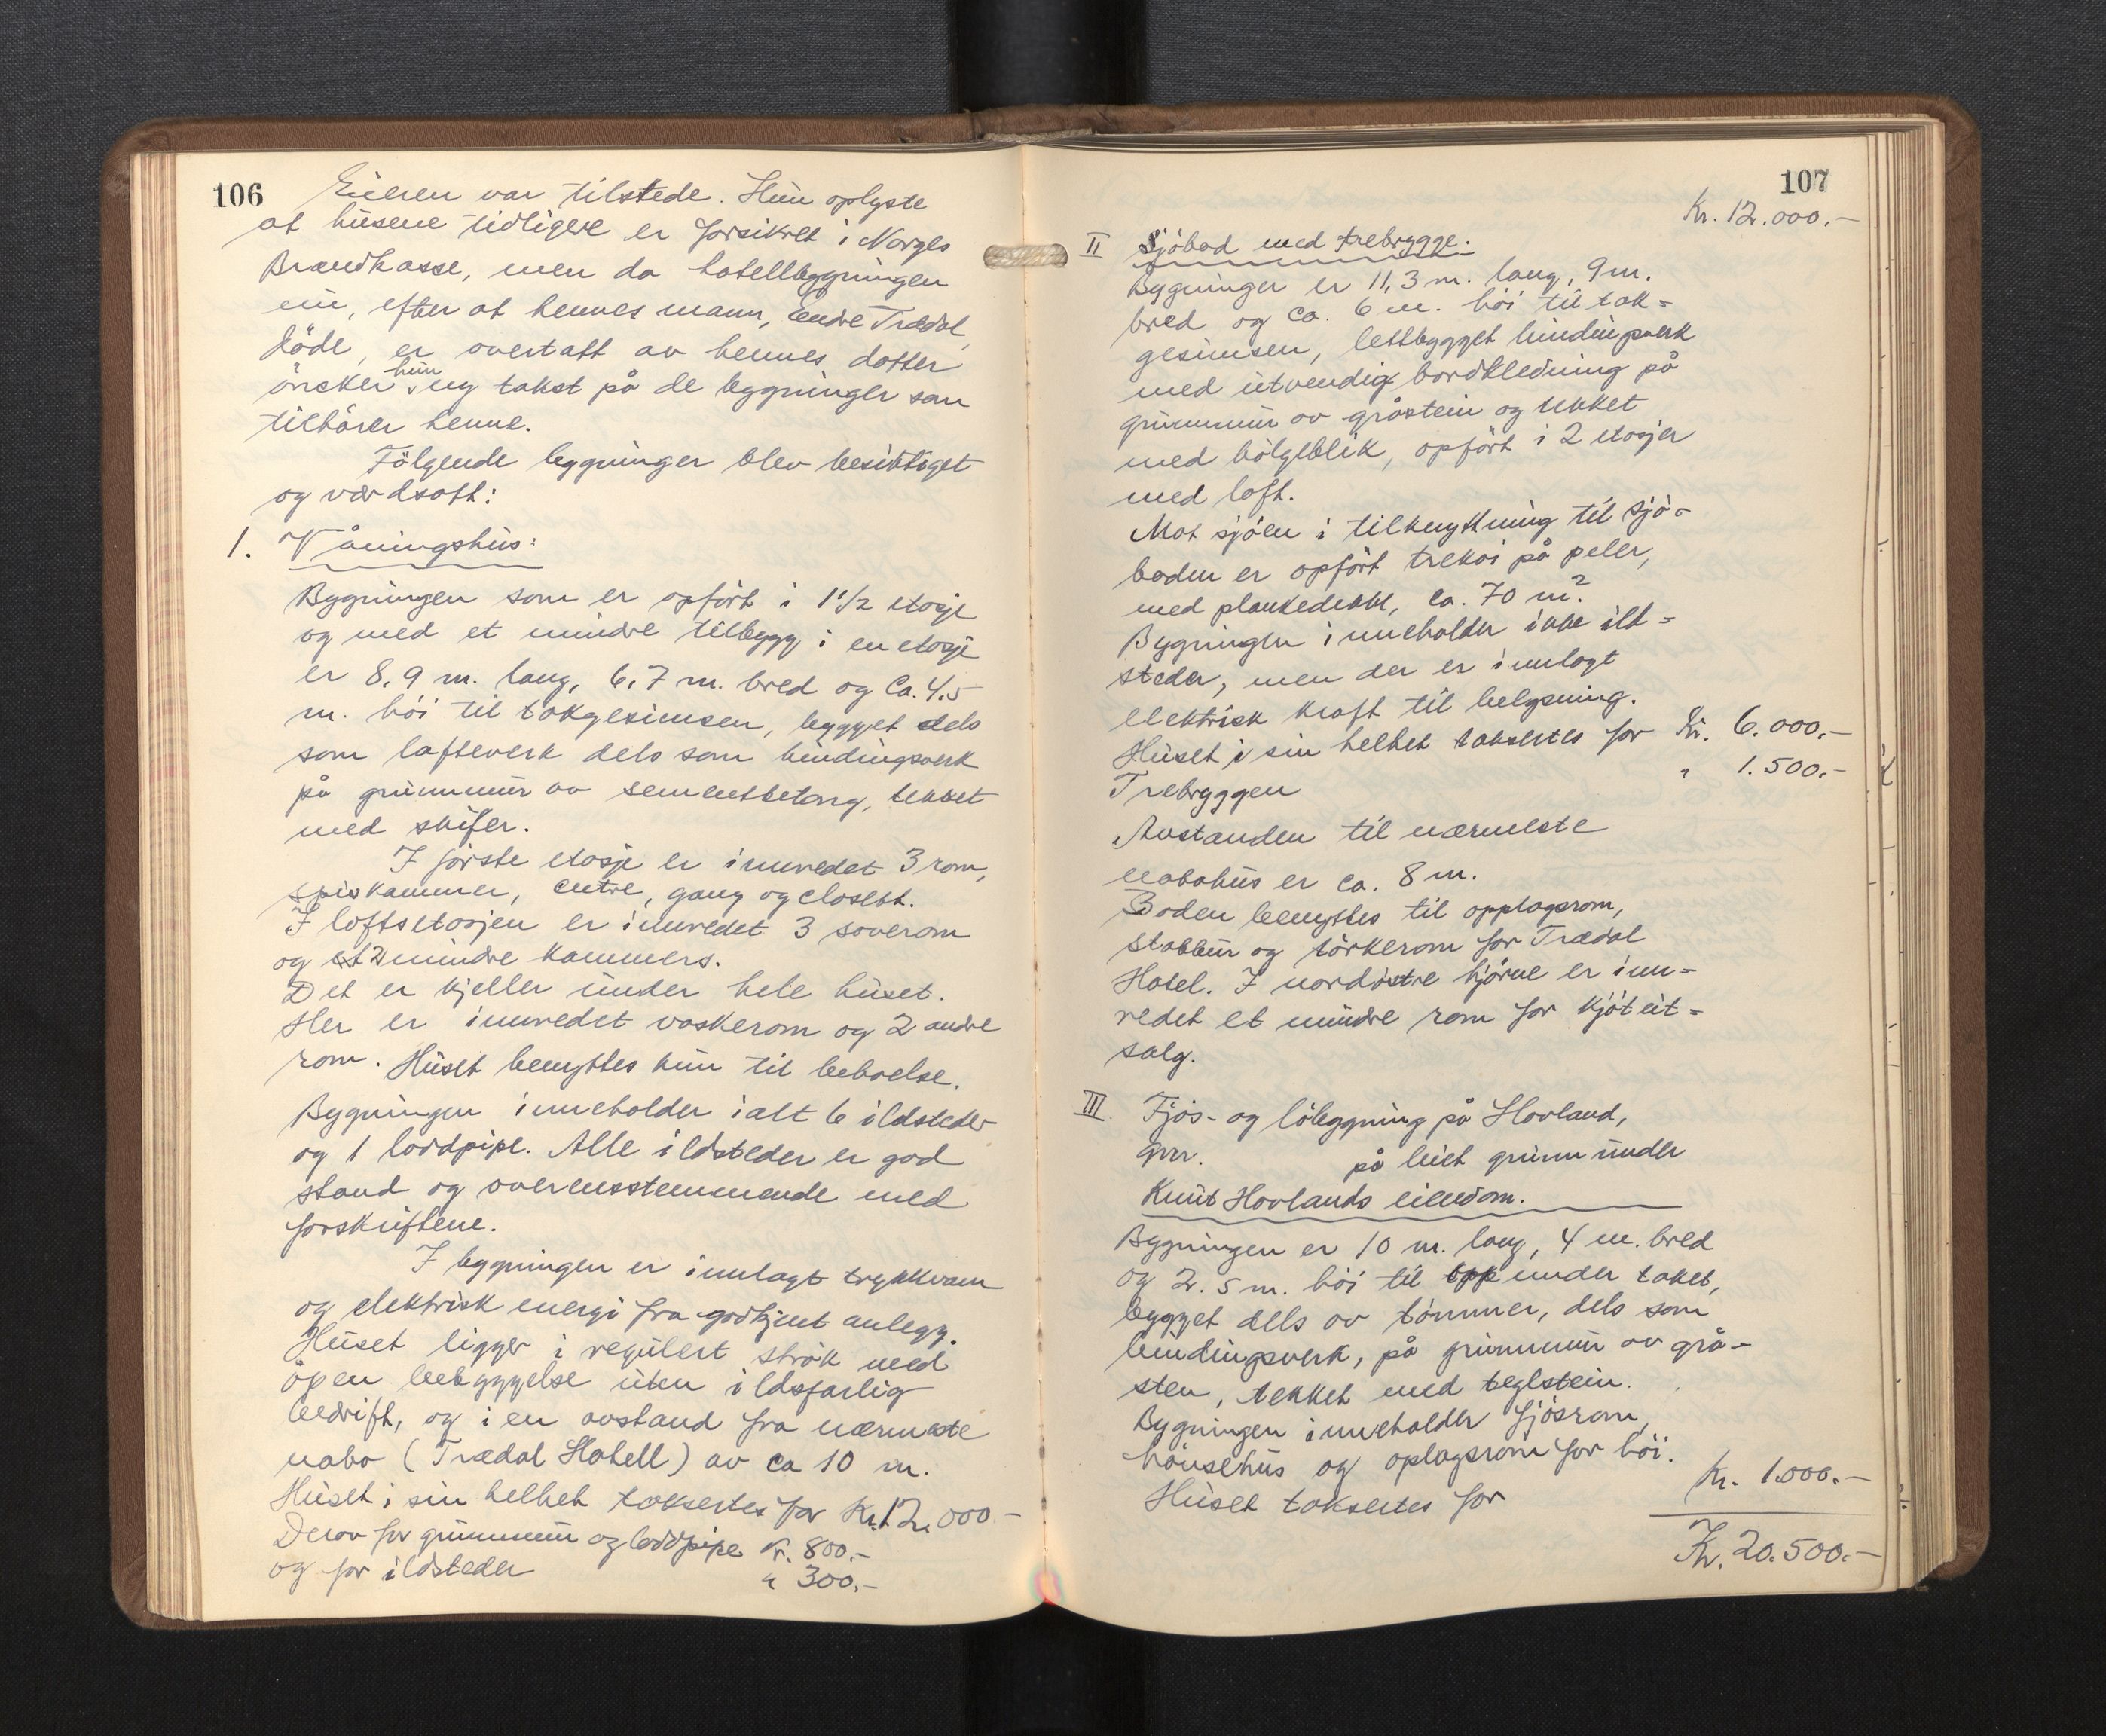 106
Eieren var tilstede. Hun oplyste
at husene tidligere er forsikret i Norges
Brandkasse, men da hotellbygningen
nu, efter at hennes mann, Endre Trædal,
döde, er overtatt av hennes dotter
önsker hun ny takst på de bygninger som
tilhörer henne.
Fölgende bygninger blev besiktiget
og værdsatt:
1. Våningshus:
Bygningen som er opfört i 1 1/2 etasje
og med et mindre tilbygg i en etasje
er 8,9 m. lang, 6,7 m. bred og ca. 4.5
m. höi til takgesimsen, bygget dels
som lafteverk dels som bindingsverk
på grunnmur av sementbetong, tekket
med skifer.
I förste etasje er innredet 3 rom,
spiskammer, entre, gang og closett.
I loftsetasjen er innredet 3 soverom
og 2 mindre kammers.
Det er kjeller under hele huset.
Her er innredet vaskerom og 2 andre
rom. Huset benyttes kun til beboelse.
Bygningen inneholder ialt 6 ildsteder
og 1 loddpipe. Alle ildsteder er god
stand og overensstemmende med
forskriftene.
I bygningen er innlagt trykkvann
og elektrisk energi fra godkjent anlegg.
Huset ligger i regulert strök med
åpen bebyggelse uten ildsfarlig
bedrift, og i en avstand fra nærmeste
nabo (Trædal Hotell) av ca 10 m.
Huset i sin helhet taksertes for Kr. 12.000.-
Derav for grunnmur og loddpipe Kr. 800.-
og for ildsteder " 300.-
107
Kr. 12.000.-
II Sjöbod med trebrygge.
Bygningen er 11,3 m. lang, 9 m.
bred og ca. 6 m. höi til tak=
gesimsen, lettbygget bindingsverk
med utvendig bordkledning på
grunnmur av gråstein og tekket
med bölgeblik, opfört i 2 etasjer
med loft.
Mot sjöen i tilknyttning til sjö-
boden er opfört trekai på peler,
med plankedekke, ca. 70 m².
Bygningen inneholder ikke ild=
steder, men der er innlagt
elektrisk kraft til belysning.
Huset i sin helhet taksertes for Kr. 6.000.-
Trebryggen " 1.500.-
Avstanden til nærmeste
nabohus er ca. 8 m.
Boden benyttes til opplagsrom,
stabbur og törkerom for Trædal
Hotel. I nordöstre hjörne er inn=
redet et mindre rom for kjötut=
salg.
III. Fjös- og löbygning på Hovland,
gnr. på leiet grunn under
Knut Hovlands eiendom.
Bygningen er 10 m. lang, 4 m. bred
og 2.5 m. höi til opp under taket,
bygget dels av tömmer, dels som
bindingsverk, på grunnmur av grå-
sten, tekket med teglstein.
Bygningen inneholder fjösrom,
hönsehus og oplagsrom for höi.
Huset taksertes for Kr. 1.000.-
Kr. 20.500.-